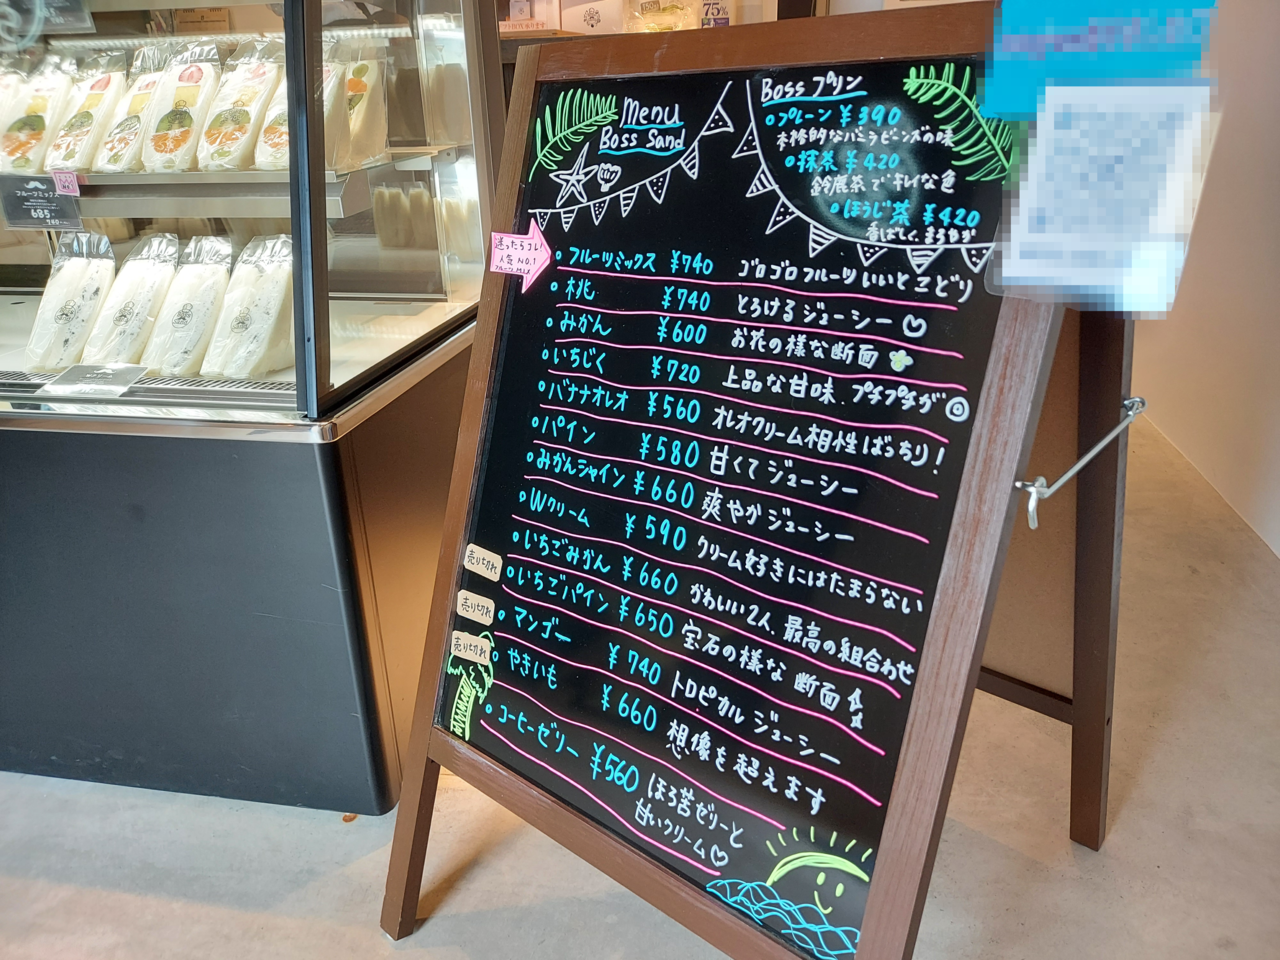 Menu
Boss Sand
Boss プリン
プレーン ¥390
本格的なバニラビーンズの味
抹茶 ¥420
鈴鹿茶でキレイな色
ほうじ茶 ¥420
香ばしく、まろやか
迷ったらコレ!
人気 NO.1
フルーツMIX
フルーツミックス ¥740 ゴロゴロフルーツいいとこどり
桃 ¥740 とろけるジューシー♡
みかん ¥600 お花の様な断面
いちじく ¥720 上品な甘味、プチプチが◎
バナナオレオ ¥560 オレオクリーム相性ばっちり!
パイン ¥580 甘くてジューシー
みかんシャイン ¥660 爽やかジューシー
Wクリーム ¥590 クリーム好きにはたまらない
いちごみかん ¥660 かわいい2人、最高の組合わせ
売り切れ
いちごパイン ¥650 宝石の様な断面
売り切れ
マンゴー ¥740 トロピカルジューシー
売り切れ
やきいも ¥660 想像を超えます
コーヒーゼリー ¥560 ほろ苦ゼリーと
甘いクリーム♡
フルーツミックス
685
740
75%